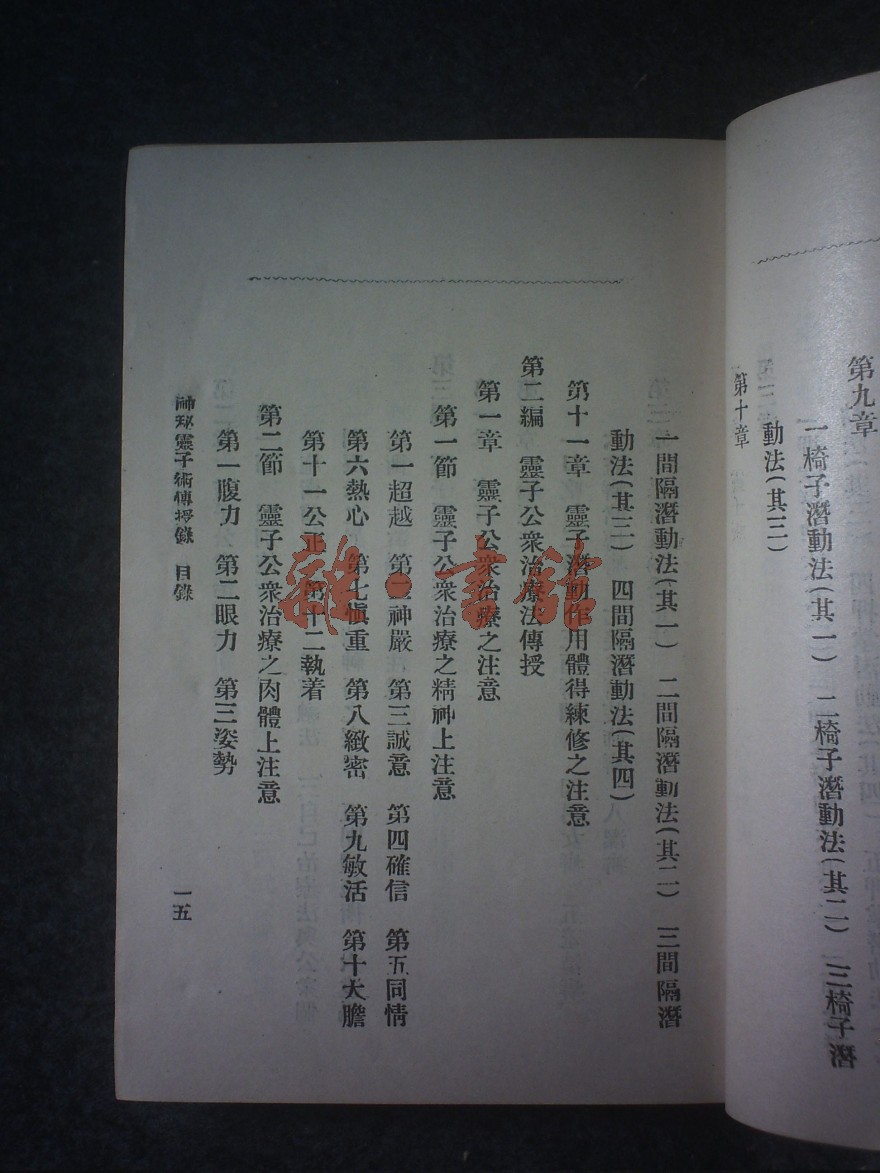 第九章
一椅子潛動法(其一) 二椅子潛動法(其二) 三椅子潛
動法(其三)
第十章
一間隔潛動法(其一) 二間隔潛動法(其二) 三間隔潛
動法(其三) 四間隔潛動法(其四)
第十一章 靈子潛動作用體得練修之注意
第二編 靈子公衆治療法傳授
第一章 靈子公衆治療之注意
第一節 靈子公衆治療之精神上注意
第一超越 第二神嚴 第三誠意 第四確信 第五同情
第六熱心 第七愼重 第八緻密 第九敏活 第十大膽
第十一公正 第十二執着
第二節 靈子公衆治療之肉體上注意
第一腹力 第二眼力 第三姿勢
神秘靈子術傳授錄 目錄
一五
雜·書館